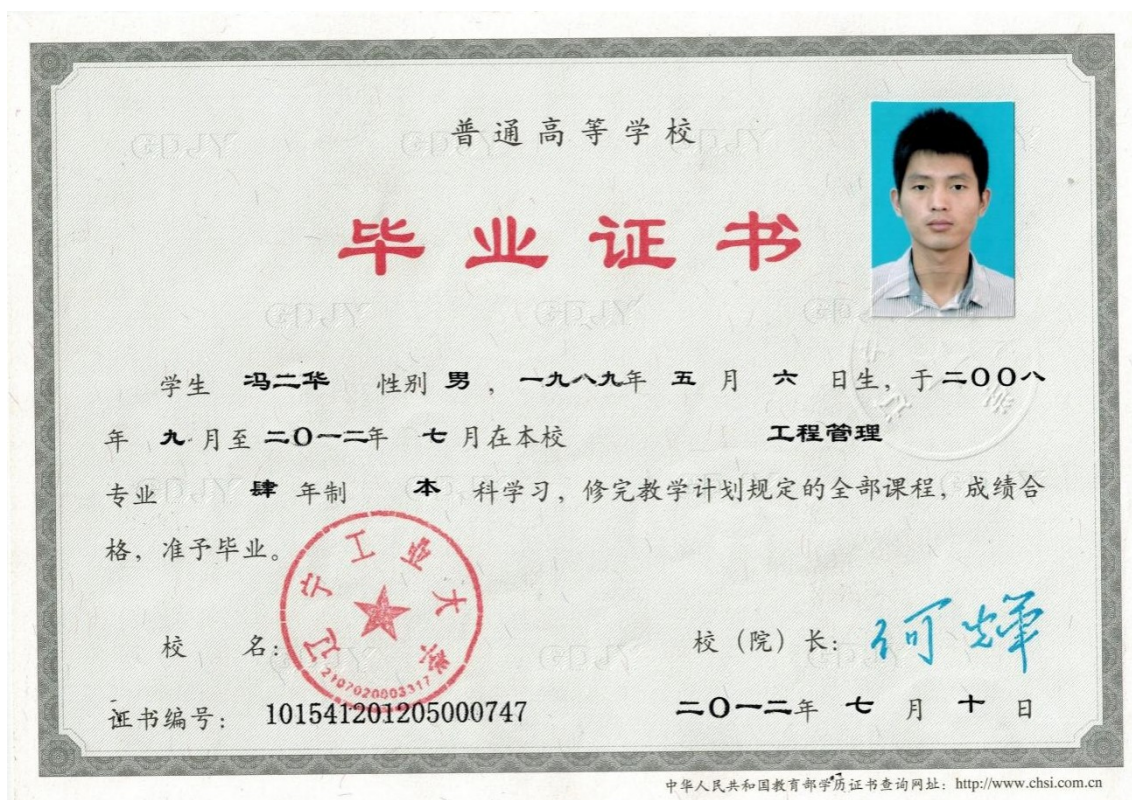 普通高等学校
毕业证书
学生 冯二华 性别 男，一九八九年 五 月 六 日生，于二〇〇八
年 九 月至二〇一二年 七 月在本校 工程管理
专业 肆 年制 本 科学习，修完教学计划规定的全部课程，成绩合
格，准予毕业。
辽宁工业大学
2107020003317
校 名： 校（院）长：
证书编号： 101541201205000747 二〇一二年 七 月 十 日
中华人民共和国教育部学历证书查询网址：http://www.chsi.com.cn
GDJY